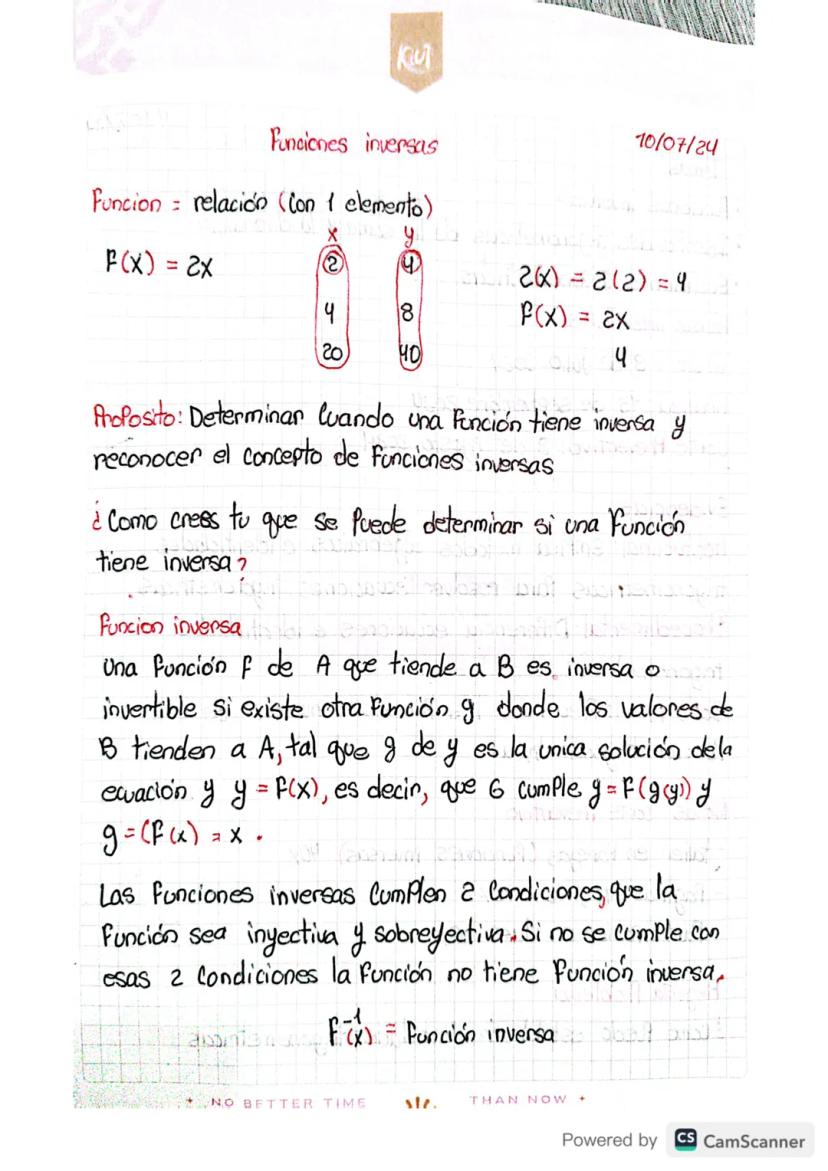 KIUT
Funciones inversas 10/07/24
Funcion = relación (Con 1 elemento)
x y
F(x) = 2x 2 4 2(x) = 2(2) = 4
4 8 F(x) = 2x
20 40 4
Proposito: Determinar Cuando una Función tiene inversa y
reconocer el concepto de Funciones inversas
¿Como crees tu que se Puede determinar si una Función
tiene inversa?
Funcion inversa
Una Función F de A que tiende a B es inversa o
invertible si existe otra Función g donde los valores de
B tienden a A, tal que g de y es la unica solución de la
ecuación y y = F(x), es decir, que G cumple y = F(g(y)) y
g=(F(x) = x.
Las Funciones inversas CumPlen 2 Condiciones, que la
Función sea inyectiva y sobreyectiva. Si no se cumple con
esas 2 Condiciones la Función no tiene Función inversa.
F⁻¹(x) = Función inversa
NO BETTER TIME THAN NOW
Powered by CS CamScanner